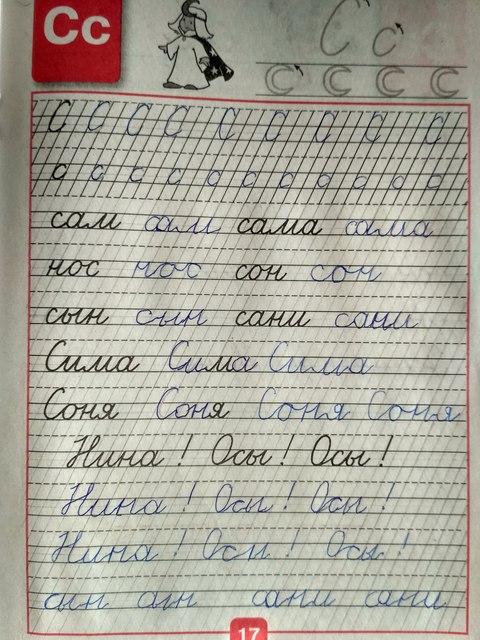 Сс
С с
С С С С
С С С С С С С С С
с с с с с с с с с с с
сам сам сама сама
нос нос сон сон
сын сын сани сани
Сима Сима Сима
Соня Соня Соня Соня
Нина! Осы! Осы!
Нина! Осы! Осы!
Нина! Осы! Осы!
сын сани сани
17